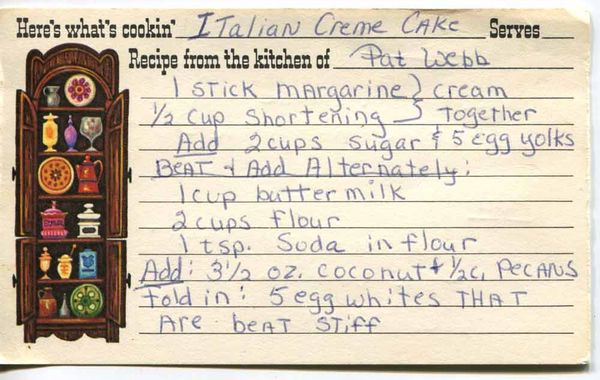 Here's what's cookin' Italian Creme Cake Serves
Recipe from the kitchen of Pat Webb
1 stick margarine } cream
1/2 cup shortening } Together
Add 2 cups sugar & 5 egg yolks
Beat & Add Alternately:
1 cup buttermilk
2 cups flour
1 tsp. Soda in flour
Add: 3 1/2 oz. coconut & 1/2 c. Pecans
Fold in: 5 egg whites THAT
Are beat stiff